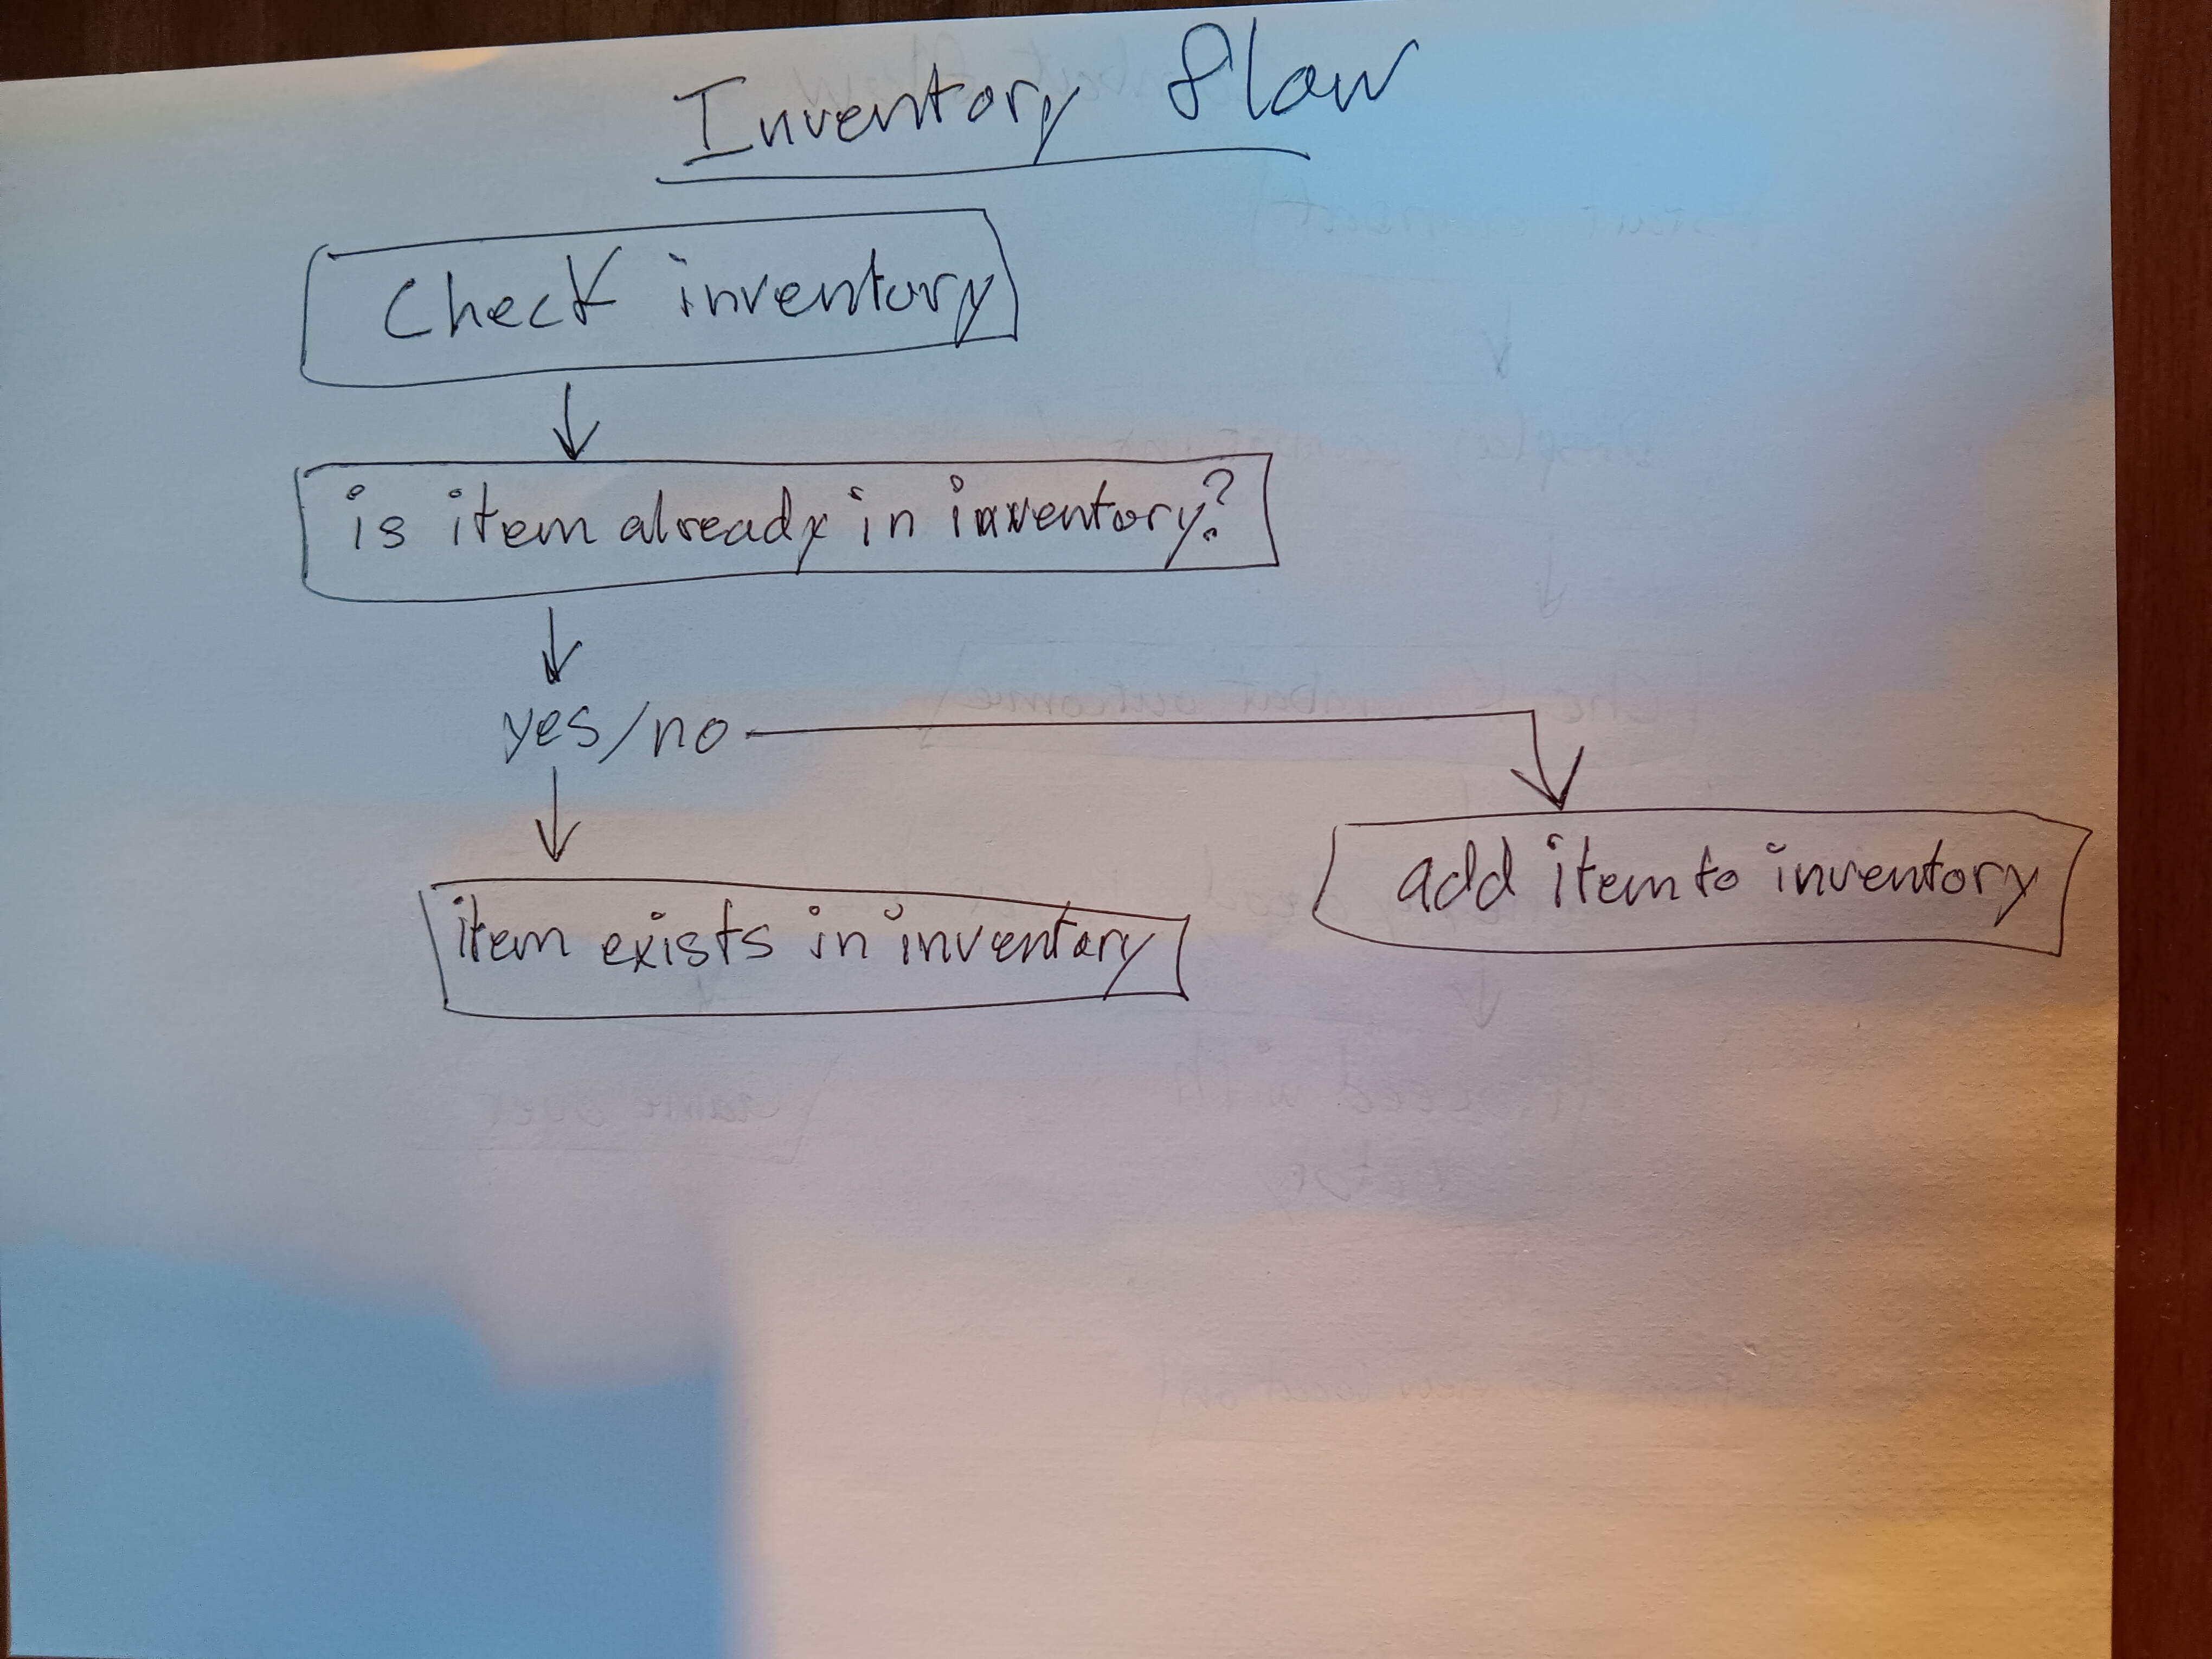 Inventory Flow
Check inventory
is item already in inventory?
yes/no
item exists in inventory
add item to inventory